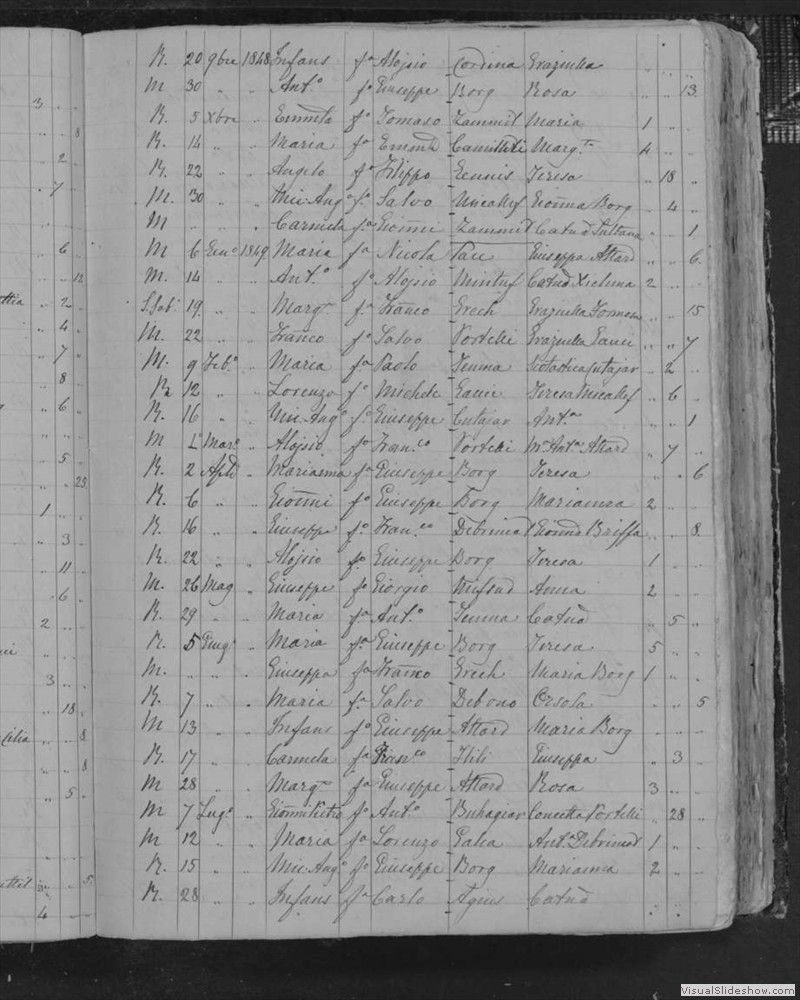 3 " "
" " 8
2 " "
" 7 "
" 6
" " 12
2 "
" 4 "
" 7
" 8
" 6
" " "
5
" " 25
1 " "
3
11
6
2 "
3
18
cilia " " 8
8
5
5
4
R. 20 9bre 1848 Infans fo Alojsio Cordina Graziulla " " "
M 30 " " Anto fo Giuseppe Borg Rosa " " 13
R. 5 Xbre " fo Tomaso Zammit Maria 1 " "
R. 14 " " Maria fa Camilleri Margta 4 " "
R. 22 " " Angelo fo Filippo Teresa " 18 "
M. 30 " " Mic. Ango fo Salvo Micallef Gionna Borg " 4 "
M " " " Carmela fa Gionni Zammit Catna Sultana " " 1
M 6 Geno 1849 Maria fa Nicola Pace Giuseppa Attard " " 6
M. 14 " " Anto fo Alojsio Mintuf Catna Xicluna 2 " "
S.Sab. 19 " " Marga fa Franco Grech Graziulla Formosa " " 15
M. 22 " " Franco fo Salvo Portelli Graziulla Gauci " " 7
M. 9 Febo " Maria fa Paolo Scolastica Cutajar " 2 "
R 12 " " Lorenzo fo Michele Gauci Teresa Micallef " 6 "
R. 16 " " Mic. Ango fo Giuseppe Cutajar Anta " " 1
M 1 Maro " Alojsio fo Franco Portelli Ma Anta Attard " 7 "
R. 2 Aple " Marianna fa Giuseppe Borg Teresa " " 6
R. 6 " " Gionni fo Giuseppe Borg Marianna 2 " "
R. 16 " " Giuseppe fo Franco Debrincat Gionna Briffa " " 8
R. 22 " " Alojsio fo Giuseppe Borg Teresa 1 " "
M. 26 Mag " Giuseppe fo Giorgio Mifsud Anna 2 " "
R. 29 " " Maria fa Anto Catna " 5 "
R. 5 Giugo " Maria fa Giuseppe Borg Teresa 5 " "
M. " " " Giuseppa fa Franco Grech Maria Borg 1 " "
R. 7 " " Maria fa Salvo Debono Orsola " " 5
M 13 " " Infans fo Giuseppe Attard Maria Borg " " "
R. 17 " " Carmela fa Franco Giuseppa " 3 "
M 28 " " Marga fa Giuseppe Attard Rosa 3 " "
M 7 Lugo " Gionni Pietro fo Anto Buhagiar Concetta Portelli " 28 "
M 12 " " Maria fa Lorenzo Galea Anta Debrincat 1 " "
R. 15 " " Mic. Ango fo Giuseppe Borg Marianna 2 " "
R. 28 " " Infans fa Carlo Agius Catna " "
VisualSlideshow.com